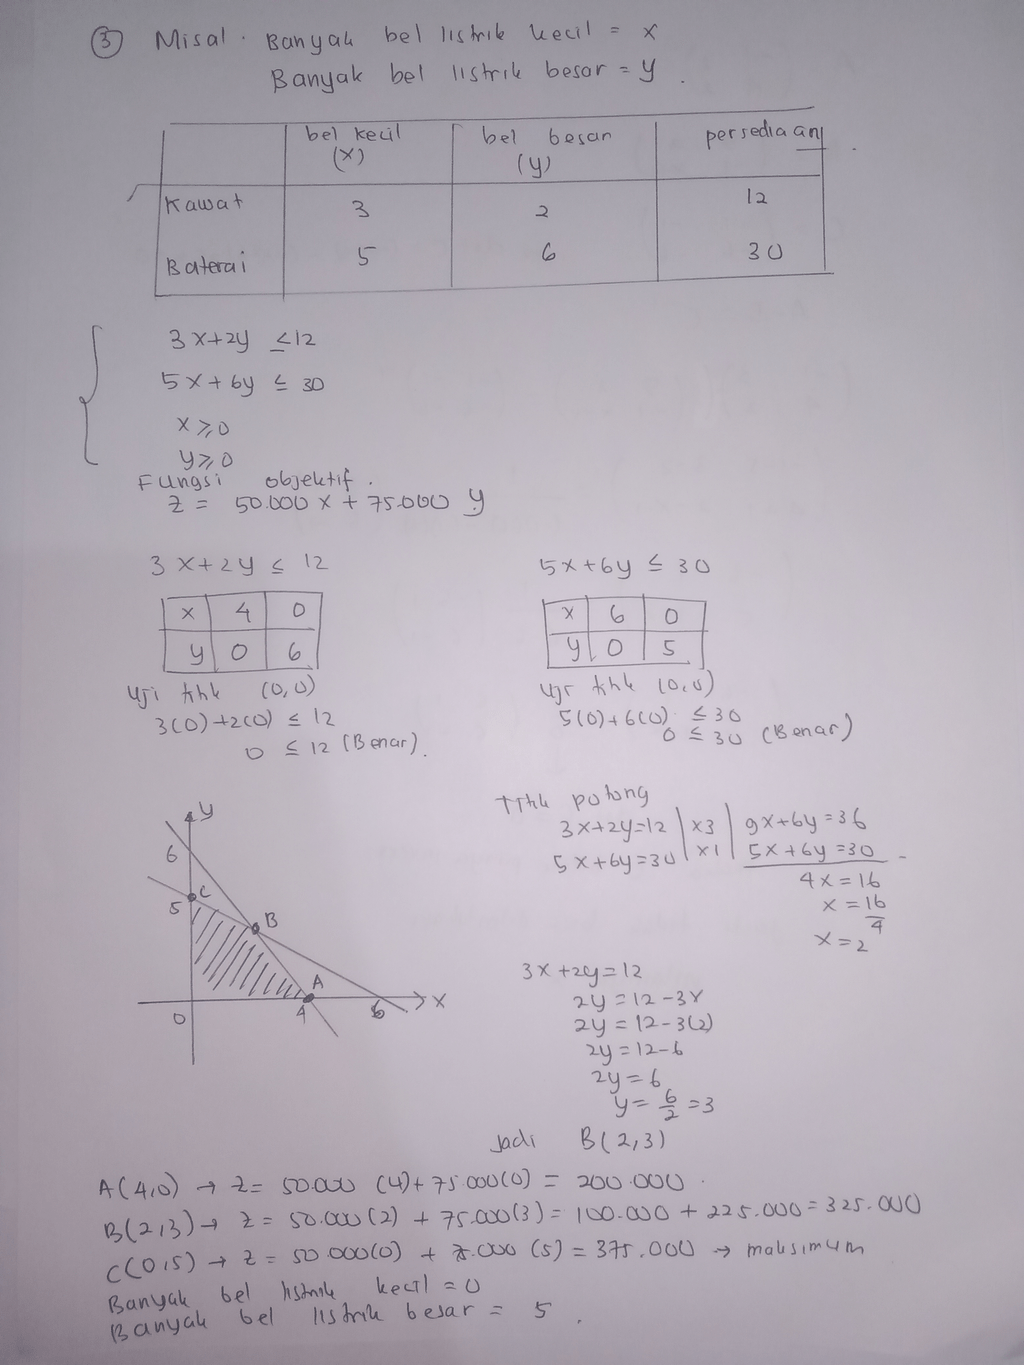 ③ Misal. Banyak bel listrik kecil = x
Banyak bel listrik besar = y.
bel kecil (x) bel besar (y) persediaan
Kawat 3 2 12
Baterai 5 6 30
3x+2y ≤ 12
5x+6y ≤ 30
x ≥ 0
y ≥ 0
Fungsi objektif.
z = 50.000 x + 75.000 y
3x+2y ≤ 12
x 4 0
y 0 6
Uji ttk (0,0)
3(0)+2(0) ≤ 12
0 ≤ 12 (Benar).
5x+6y ≤ 30
x 6 0
y 0 5
Uji ttk (0,0)
5(0)+6(0) ≤ 30
0 ≤ 30 (Benar)
y
6
C
5
B
A
0
4
6
x
Titik potong
3x+2y=12 | x3 | 9x+6y=36
5x+6y=30 | x1 | 5x+6y=30 -
4x=16
x=16/4
x=2
3x+2y=12
2y=12-3x
2y=12-3(2)
2y=12-6
2y=6
y=6/2=3
Jadi B(2,3)
A(4,0) → z= 50.000 (4)+75.000(0) = 200.000.
B(2,3) → z = 50.000(2) + 75.000(3) = 100.000 + 225.000 = 325.000
C(0,5) → z = 50.000(0) + .000 (5) = 375.000 → maksimum
Banyak bel listrik kecil = 0
Banyak bel listrik besar = 5.